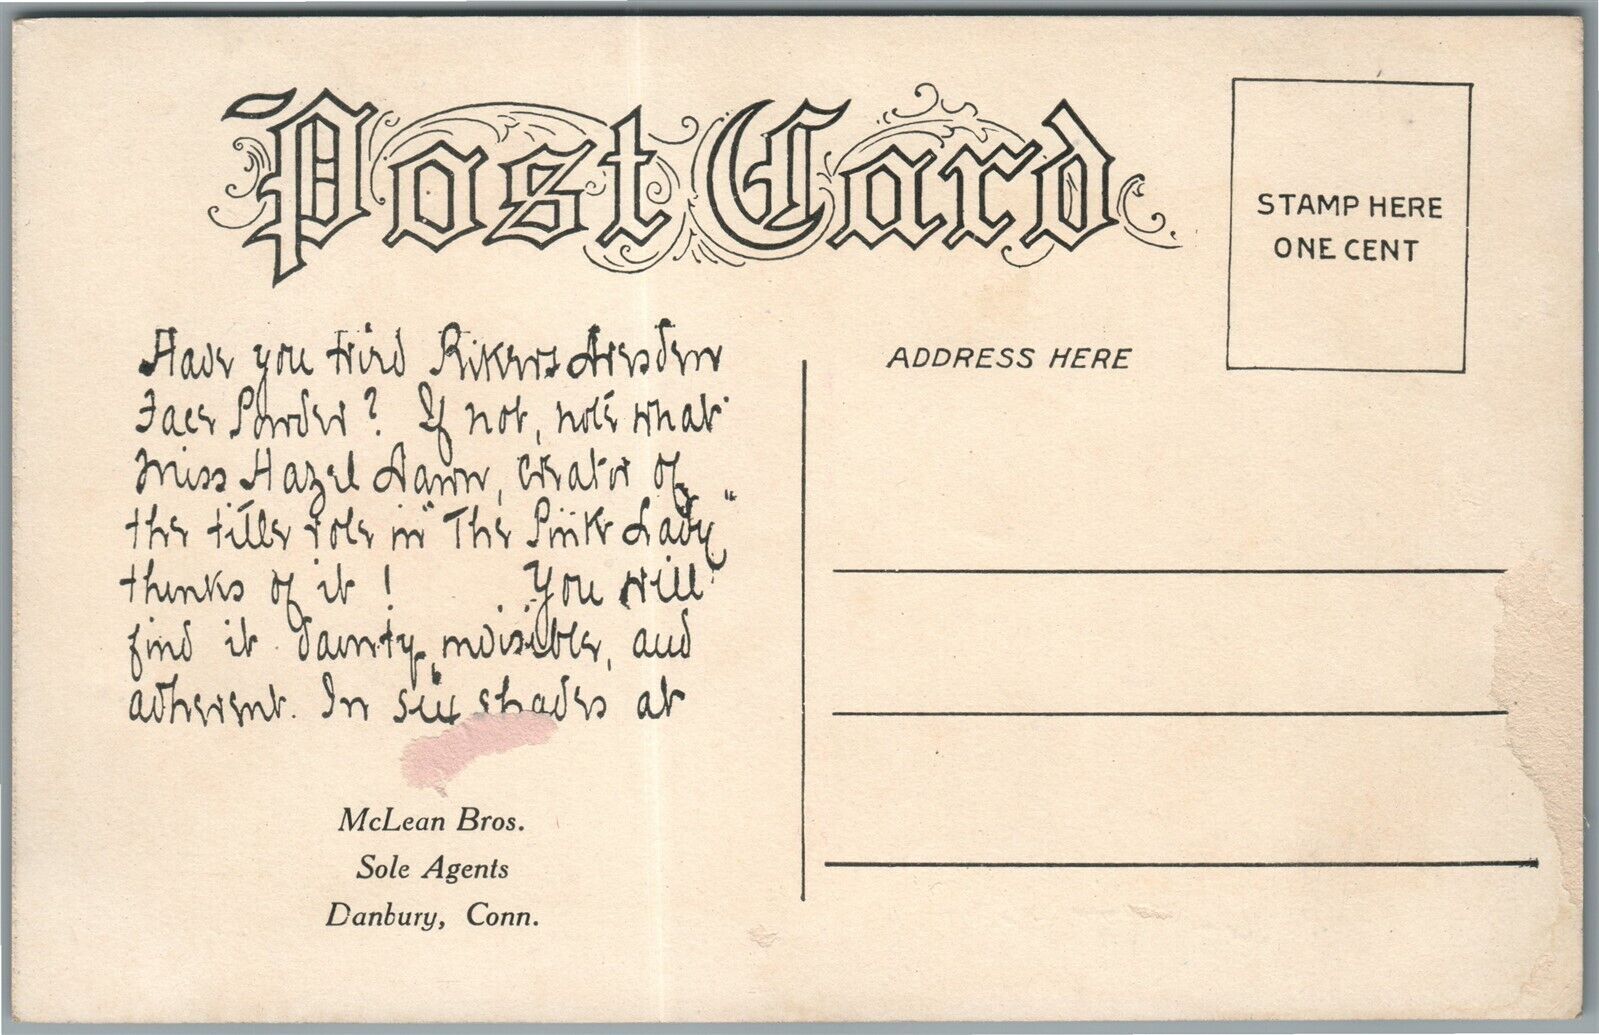 Post Card
STAMP HERE
ONE CENT
ADDRESS HERE
Have you tried Rikers Dresden
Face Powder? If not, note what
Miss Hazel Dawn, creator of
the title role in "The Pink Lady"
thinks of it! You will
find it dainty, invisible, and
adherent. In six shades at
McLean Bros.
Sole Agents
Danbury, Conn.